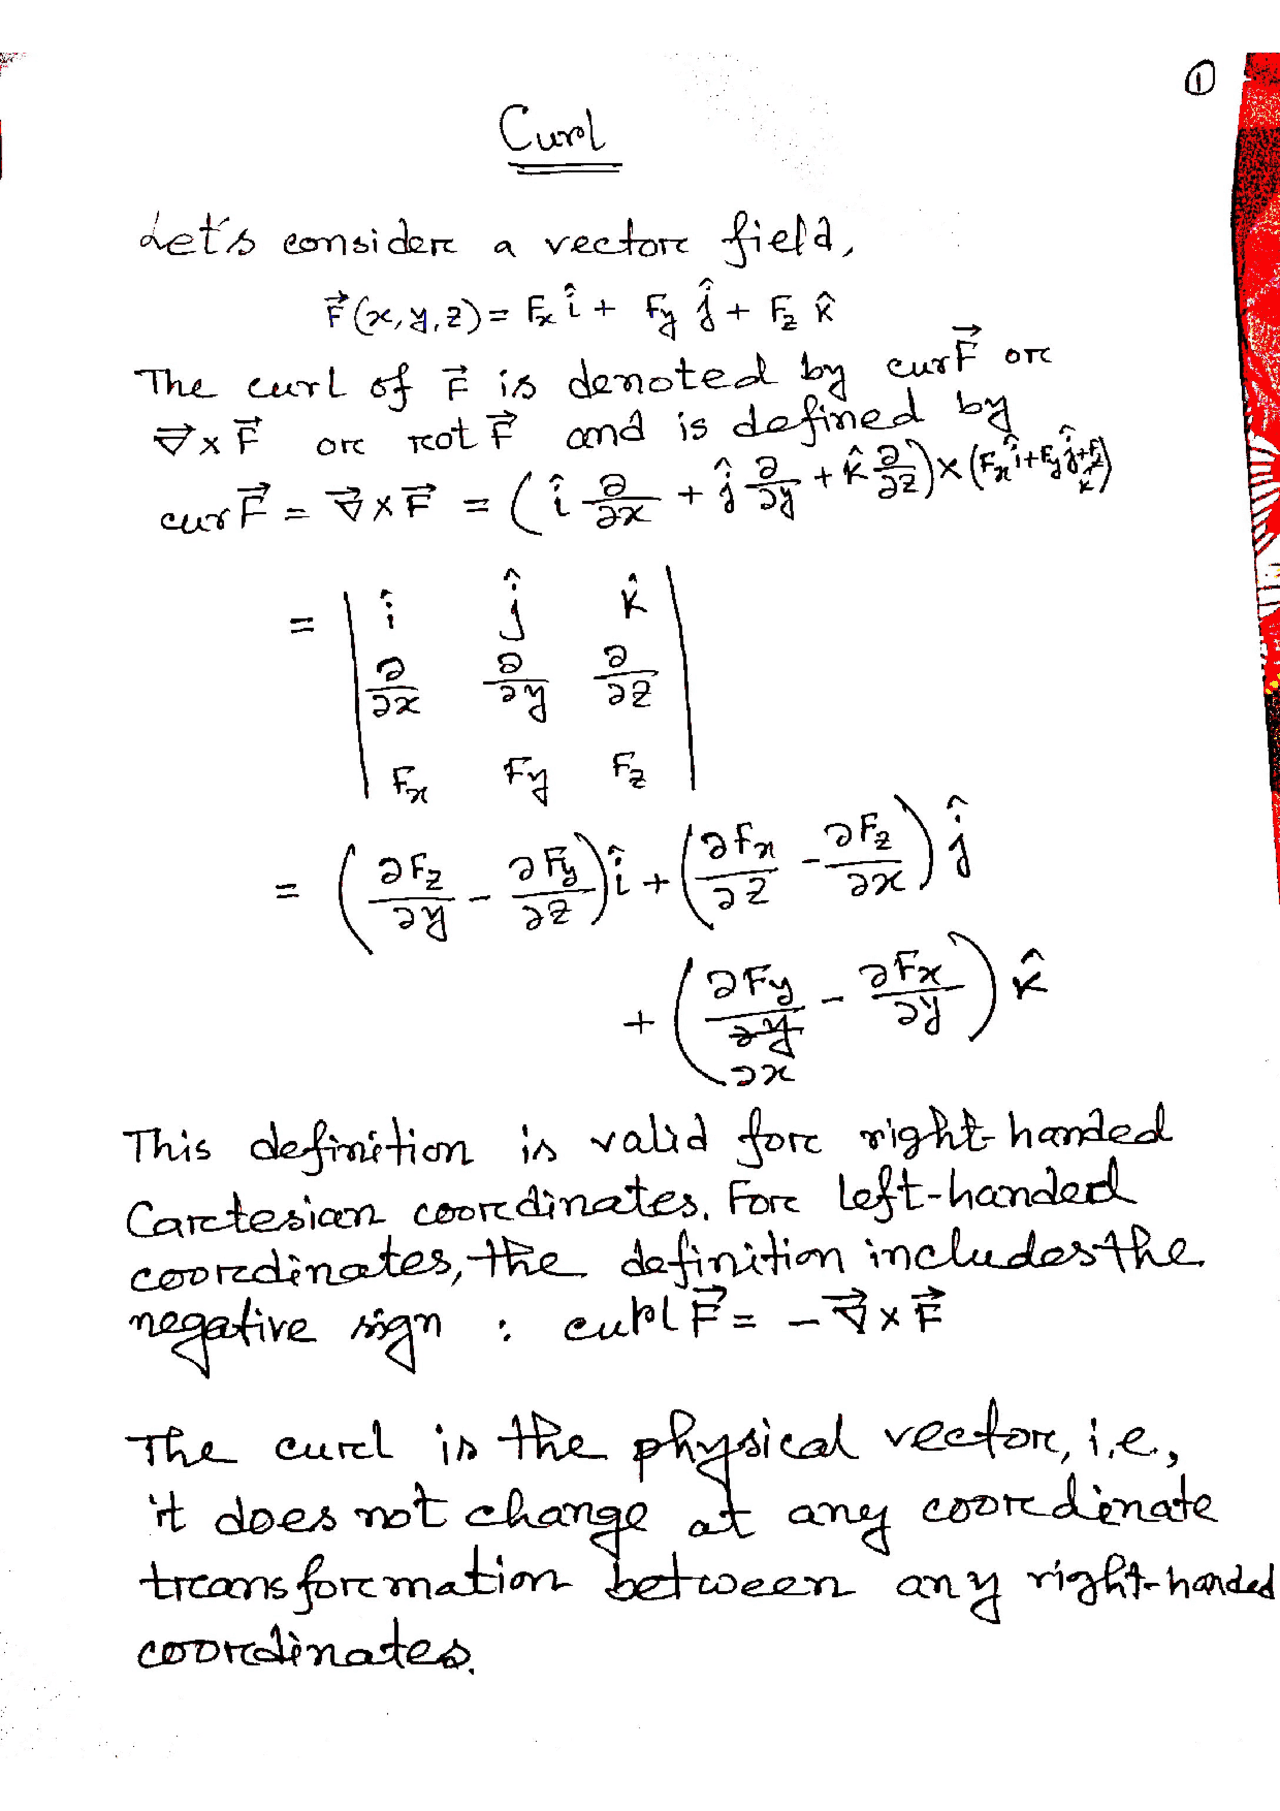 ①
Curl
Let's consider a vector field,
F⃗(x,y,z) = Fₓ î + F_y ĵ + F_z k̂
The curl of F⃗ is denoted by curF⃗ or
∇⃗×F⃗ or rot F⃗ and is defined by
curF⃗ = ∇⃗×F⃗ = (î ∂/∂x + ĵ ∂/∂y + k̂ ∂/∂z) × (Fₓ î + F_y ĵ + F_z k̂)
= | î ĵ k̂ |
| ∂/∂x ∂/∂y ∂/∂z |
| Fₓ F_y F_z |
= (∂F_z/∂y - ∂F_y/∂z) î + (∂Fₓ/∂z - ∂F_z/∂x) ĵ
+ (∂F_y/∂x - ∂Fₓ/∂y) k̂
This definition is valid for right-handed
Cartesian coordinates. For left-handed
coordinates, the definition includes the
negative sign : curl F⃗ = - ∇⃗×F⃗
The curl is the physical vector, i.e.,
it does not change at any coordinate
transformation between any right-handed
coordinates.